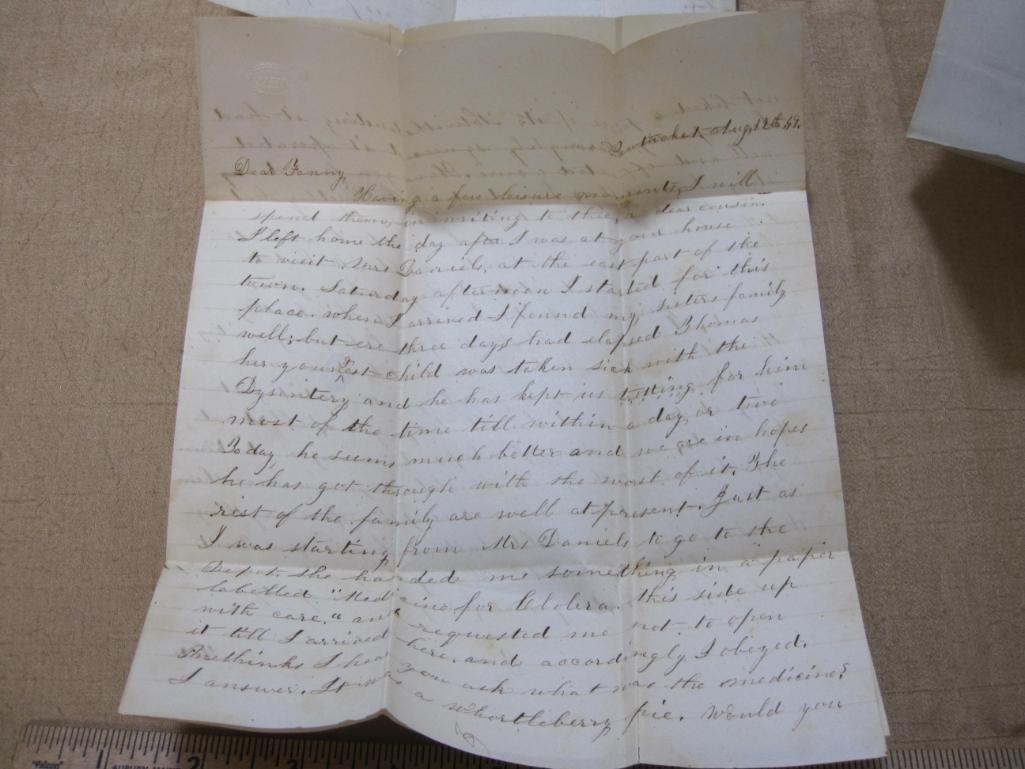 Pawtucket Aug 12th 49.
Dear Fanny,
Having a few leisure moments, I will
spend them, in writing to thee, a dear cousin
I left home the day after I was at your house
to visit Mrs Daniels, at the east part of the
town. Saturday afternoon I started for this
place. when I arrived I found my sisters family
well; but ere three days had elapsed Thomas
her youngest child was taken sick with the
Dysintery and he has kept us tending for him
most of the time till within a day, or two
To day he seems much better and we are in hopes
he has got through with the worst of it. The
rest of the family are well at present. Just as
I was starting from Mrs Daniels to go to the
Depot. she handed me something in a paper
labelled "Medicine for Clolera. this side up
with care." and requested me not to open
it till I arrived here. and accordingly I obeyed.
Methinks I hear you ask what was the medicine?
I answer. It was a whortleberry pie. Would you
1
2
3
4
5
6
7